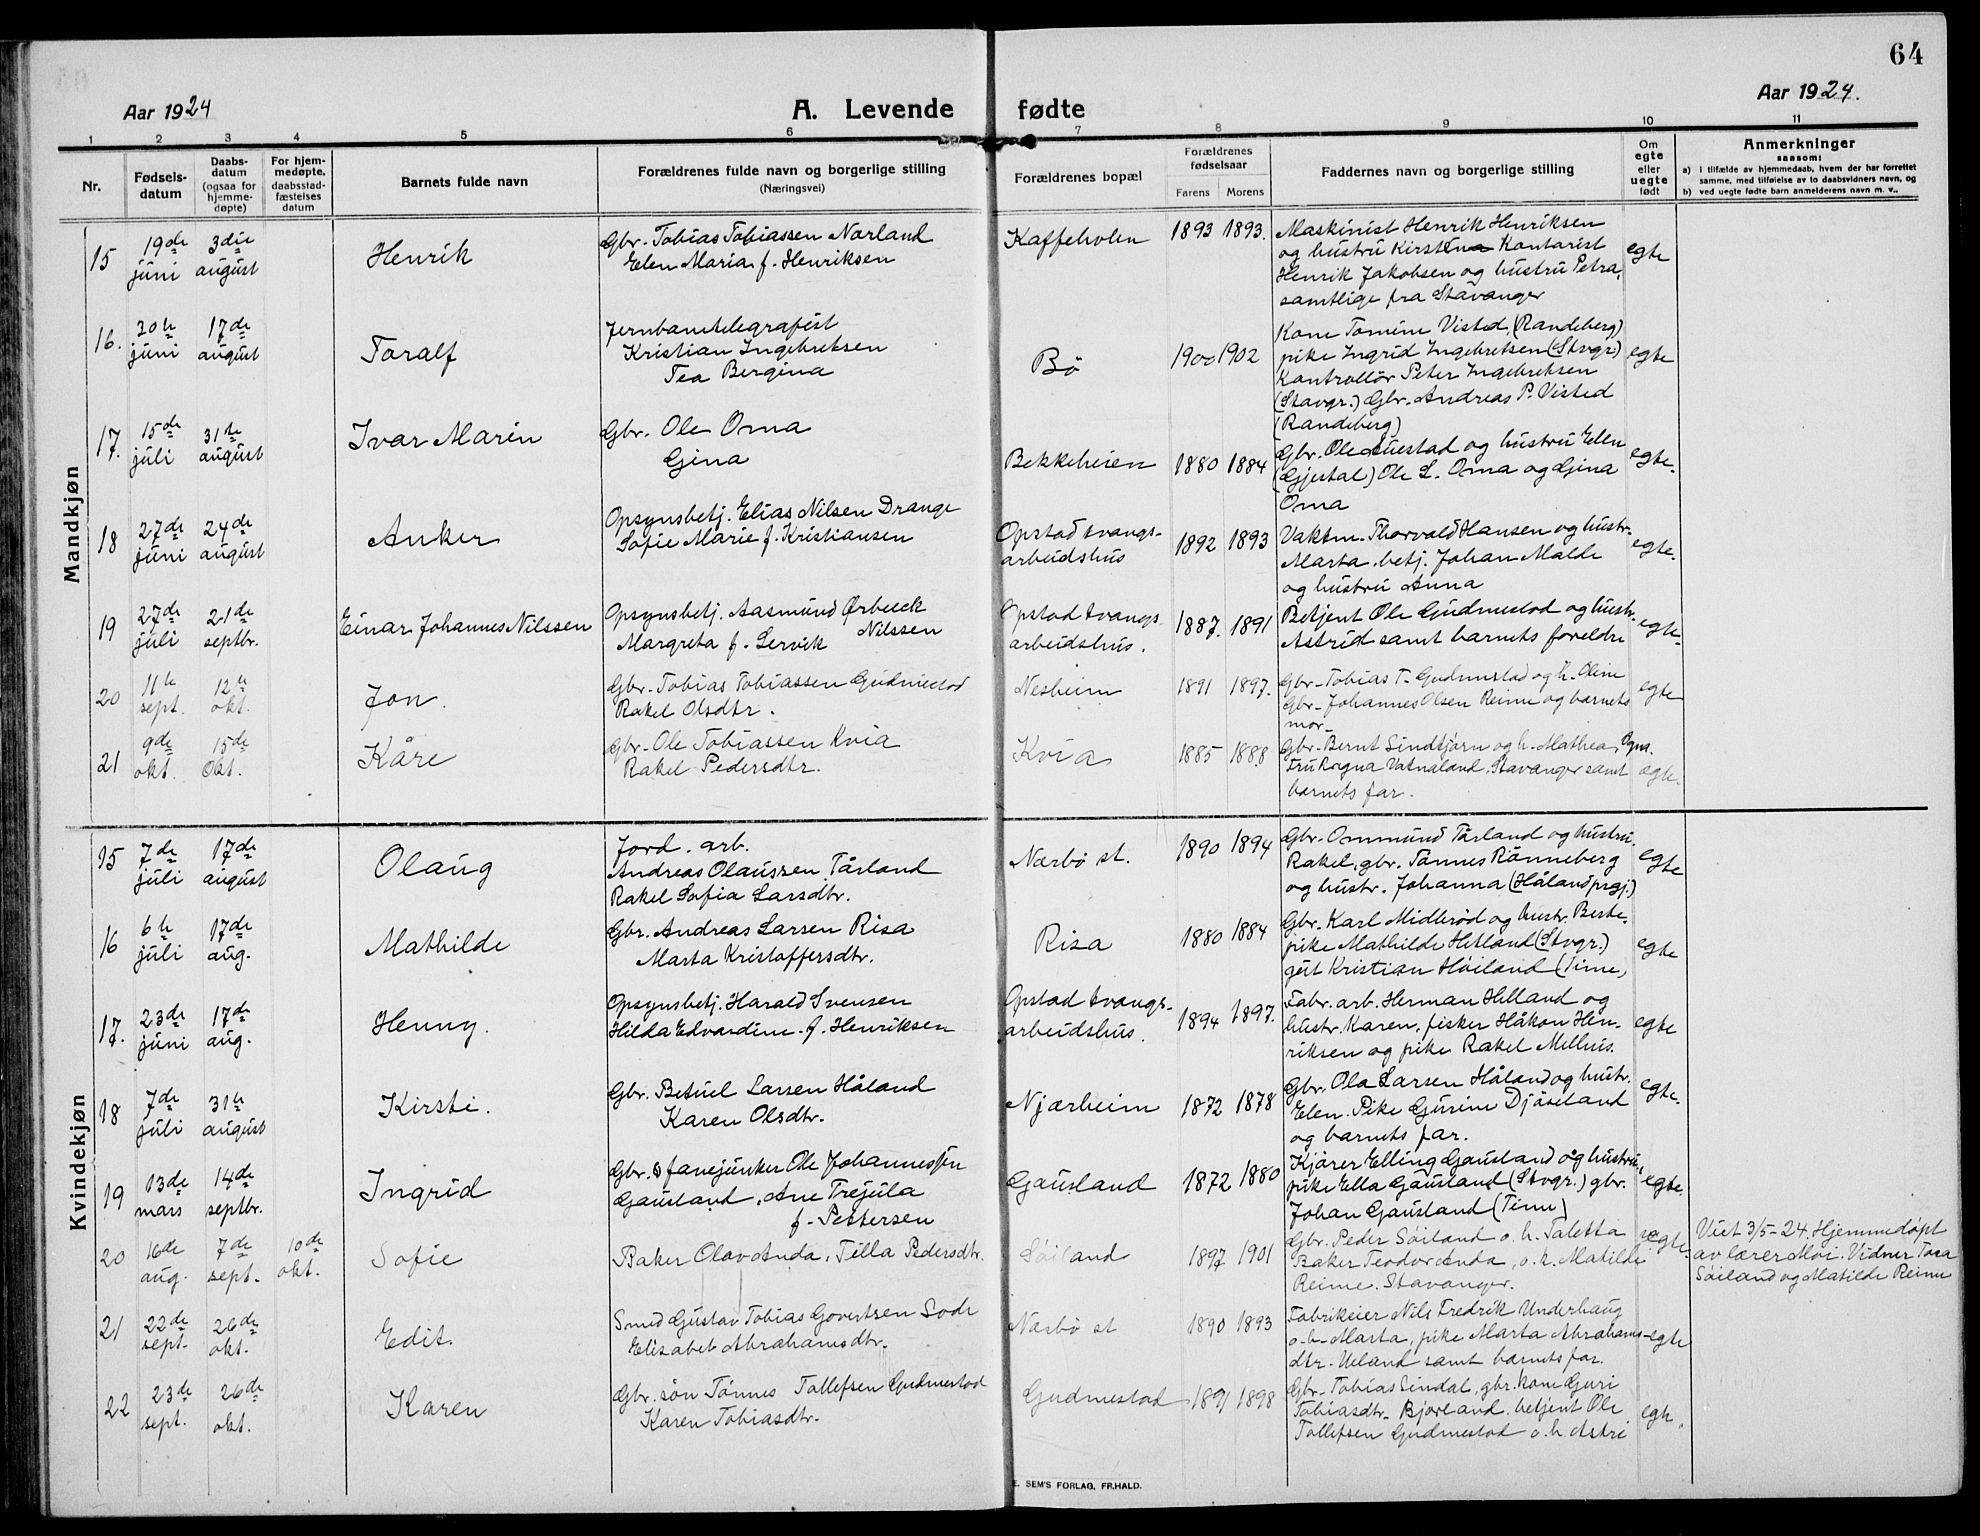 64
Aar 1924
A. Levende fødte
Aar 1924.
1 2 3 4 5 6 7 8 9 10 11
Nr.
Fødsels-
datum
Daabs-
datum
(ogsaa for
hjemme-
døpte)
For hjem-
medøpte,
daabsstad-
fæstelses
datum
Barnets fulde navn
Forældrenes fulde navn og borgerlige stilling
(Næringsvei)
Forældrenes bopæl
Forældrenes
fødselsaar
Farens Morens
Faddernes navn og borgerlige stilling
Om
egte
eller
uegte
født
Anmerkninger
saasom:
a) i tilfælde av hjemmedaab, hvem der har forrettet
samme, med tilføielse av to daabsvidners navn, og
b) ved uegte fødte barn anmelderens navn m. v..
Mandkjøn
15
19de
juni
3die
august
Henrik
Gbr. Tobias Tobiassen Nærland
Elen Maria f. Henriksen
Kaffeholen
1893 1893.
Maskinist Henrik Henriksen
og hustru Kirstina Kontorist
Henrik Jakobsen og hustru Petra,
samtlige fra Stavanger
egte
16.
30te
juni
17de
august
Toralf
Jernbanetelegrafist
Kristian Ingebretsen
Tea Bergina
Bö
1900 1902
Kone Tomine Visted, (Randeberg)
pike Ingrid Ingebretsen (Stvgr.)
Kontrollör Peter Ingebretsen
(Stavgr.) Gbr. Andreas P. Visted
(Randeberg)
egte
17.
15de
juli
31te
august
Ivar Marin
Gbr. Ole Oma
Gina
Bekkeheien
1880 1884
Gbr. Ole Auestad og hustru Elen
(Gjestal) Ole L. Oma og Gina
Oma
egte.
18
27de
juni
24de
august
Anker
Opsynsbetj. Elias Nilsen Drange
Sofie Marie f. Kristiansen
Opstad tvangs-
arbeidshus
1892 1893
Vaktm. Thorvald Hansen og hustr.
Marta. betj. Johan Malde
og hustru Anna
egte.
19
27de
juli
21de
septbr.
Einar Johannes Nilssen
Opsynsbetj. Aasmund Ørbeck
Nilssen
Margreta f. Lervik
Opstad tvangs
arbeidshus.
1887. 1891
Betjent Ole Gudmestad og hustr.
Astrid samt barnets foreldre
egte.
20
11te
sept.
12te
okt.
Jon.
Gbr. Tobias Tobiassen Gudmestad
Rakel Olsdtr.
Nesheim
1891 1897.
Gbr. Tobias T. Gudmestad og h. Oline
Gbr. Johannes Olsen Reime og barnets
mor
egte
21
9de
okt.
15de
Okt.
Kåre
Gbr. Ole Tobiassen Kvia
Rakel Pedersdtr.
Kvia
1885 1888
Gbr. Bernt Sindtjörn og h. Mathea, Ogna.
Fru Ragna Vatnaland, Stavanger samt
barnets far.
ægte.
Kvindekjøn
15
7de
juli
17de
august
Olaug
Jord. arb.
Andreas Olaussen Tårland
Rakel Sofia Larsdtr.
Nærbö st.
1890 1894
Gbr. Ommund Tårland og hustru.
Rakel, gbr. Tönnes Rönneberg
og hustr. Johanna (Håland prgj.)
egte
16
6te
juli
17de
aug.
Mathilde
Gbr. Andreas Larsen Risa
Marta Kristoffersdtr.
Risa
1880 1884
Gbr. Karl Midtröd og hustr. Berte.
pike Mathilde Hetland (Stvgr.)
gut Kristian Höiland (Time,
egte
17.
23de
juni
17de
aug.
Henny.
Opsynsbetj. Harald Svensen
Hilda Edvardine. f. Henriksen
Opstad tvangs-
arbeidshus.
1894 1897.
Fabr. arb. Herman Helland og
hustr. Karen, fisker Håkon Hen-
riksen og pike Rakel Melhus.
egte
18
7de
juli
31te
august
Kirsti.
Gbr. Betuel Larsen Håland
Karen Olsdtr.
Njærheim
1872 1878
Gbr. Ola Larsen Håland og hustr.
Elen. Pike Gurine Djöseland
og barnets far.
egte.
19
13de
mars
14de
septbr.
Ingrid
Gbr. & fanejunker Ole Johannessen
Gausland, Ane Trejula
f. Pettersen
Gausland
1872 1880
Kjörer Elling Gausland og hustru,
pike Ella Gausland (Stvgr.) gbr.
Johan Gausland (Time)
egte.
20
16de
aug.
7de
sept.
10de
okt.
Sofie
Baker Olav Anda, Tilla Pedersdtr.
Söiland
1897 1901
Gbr. Peder Söiland o. h. Taletta
Baker Teodor Anda, o. h. Matilde
Reime. Stavanger.
egte.
Viet 3/5-24. Hjemmedöpt
av lærer Moi. Vidner Tora
Söiland og Matilde Reime
21
22de
sept.
26de
okt.
Edit.
Smed Gustav Tobias Govertsen Lode
Elisabet Abrahamsdtr.
Nærbö st
1890 1893
Fabrikeier Nils Fredrik Underhaug
o. h. Marta, pike Marta Abrahams-
dtr. Ueland samt barnets far.
egte
22
23de
sept.
26de
okt.
Karen
Gbr. sön Tönnes Tollefsen Gudmestad
Karen Tobiasdtr.
Gudmestad
1891 1898
Gbr. Tobias Lindal, gbr. kone Guri
Tobiasdtr. Bjorland. betjent Ole
Tollefsen Gudmestad o. h. Astri
egte.
E. SEM'S FORLAG, FR.HALD.